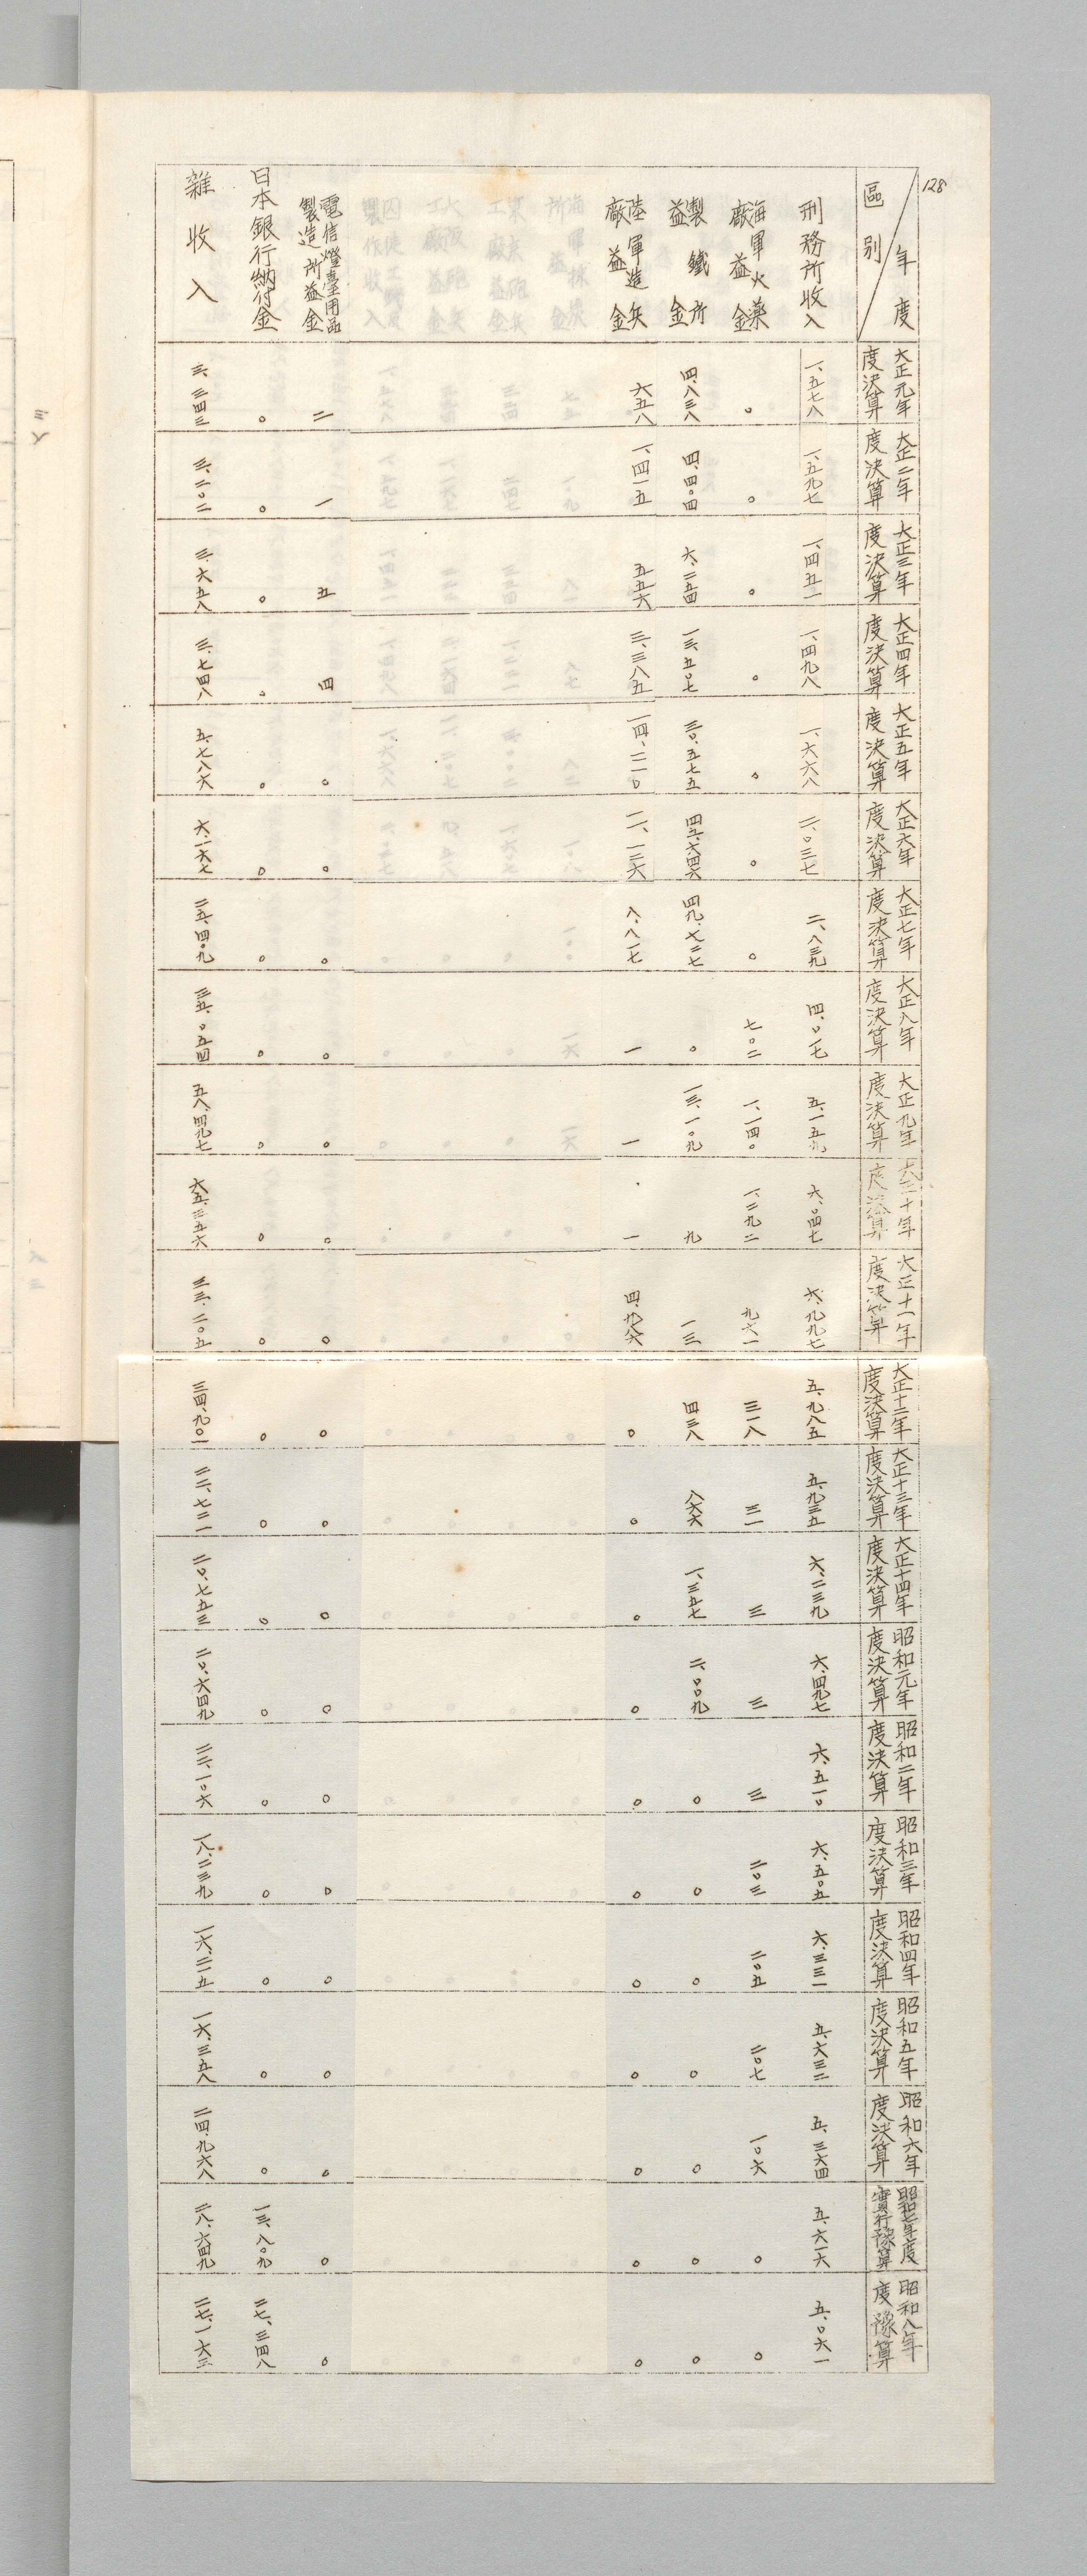 128
區別 年度 大正元年度決算 大正二年度決算 大正三年度決算 大正四年度決算 大正五年度決算 大正六年度決算 大正七年度決算 大正八年度決算 大正九年度決算 大正十年度決算 大正十一年度決算 大正十二年度決算 大正十三年度決算 大正十四年度決算 昭和元年度決算 昭和二年度決算 昭和三年度決算 昭和四年度決算 昭和五年度決算 昭和六年度決算 昭和七年度實行豫算 昭和八年度豫算
刑務所收入 一、五七八 一、五九七 一、四五一 一、四九八 一、六六八 二、〇三七 二、八三九 四、〇一七 五、一五九 六、〇四七 六、九九七 五、九八五 五、九三五 六、二三九 六、四九七 六、五一〇 六、五〇五 六、三三一 五、六三二 五、三六四 五、六一六 五、〇六一
海軍火藥廠益金 〇 〇 〇 〇 〇 〇 〇 七〇二 一、一四〇 一、二九二 九六一 三一八 三一 三 三 三 二〇三 二〇五 二〇七 一〇六 〇 〇
製鐵所益金 四、八三八 四、四〇四 六、二五四 一三、五〇七 三〇、五七五 四五、六四六 四九、七二七 〇 一三、一〇九 九 一三 四三八 八六六 一、三五七 二、〇〇九 〇 〇 〇 〇 〇 〇 〇
陸軍造兵廠益金 六五八 一、四一五 五五六 三、三八五 一四、二一〇 一一、一三六 八、八一七 一 一 一 四、九八六 〇 〇 〇 〇 〇 〇 〇 〇 〇 〇 〇
電信燈臺用品製造所益金 二 一 五 四 〇 〇 〇 〇 〇 〇 〇 〇 〇 〇 〇 〇 〇 〇 〇 〇 〇 〇
日本銀行納付金 〇 〇 〇 〇 〇 〇 〇 〇 〇 〇 〇 〇 〇 〇 〇 〇 〇 〇 〇 〇 一三、八〇九 二七、三四八
雜收入 三、三四三 三、二〇二 三、六五八 三、七四八 五、七八六 六、一六七 二五、四〇九 三五、〇五四 五八、四九七 六五、三五六 三三、二〇五 三四、九〇一 二二、七二一 二〇、七五三 二〇、六四九 二二、一〇六 一八、二三九 一六、二一五 一六、三五八 二四、九六八 二八、六四九 二七、一六三